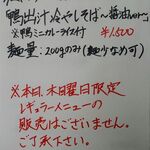 鴨出汁冷やしそば〜醤油ver〜
※鴨ミニカレーライス付 ¥1,500
麺量:200gのみ(麺少なめ可)
※本日木曜日限定
レギュラーメニューの
販売はございません。
ご了承さい。